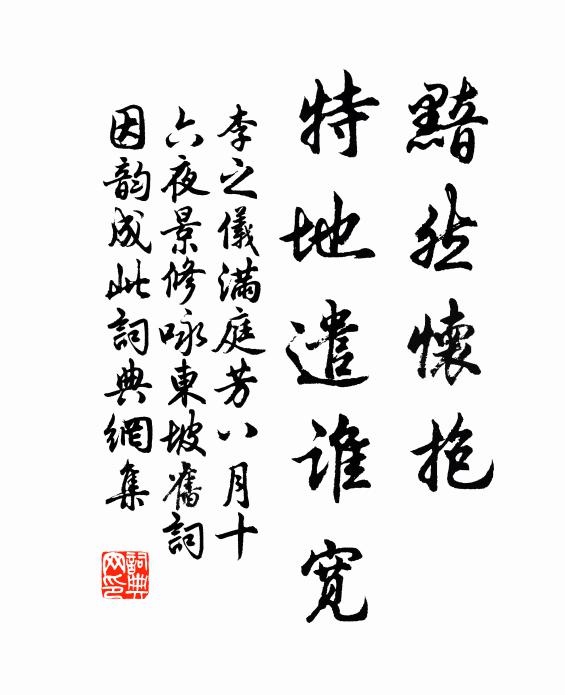 黯然懷抱
特地遣谁寬
李之儀滿庭芳八月十
六夜景修咏東坡舊詞
因韵成此詞典網集
詞典
网印